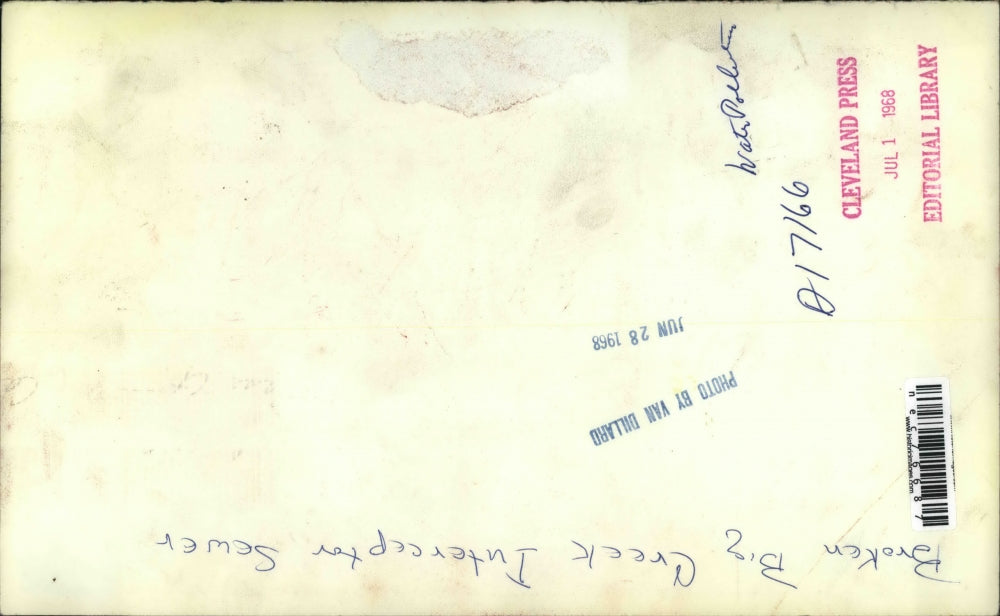 Water Pollution
D17166
CLEVELAND PRESS
JUL 1 1968
EDITORIAL LIBRARY
JUN 28 1968
PHOTO BY VAN DILLARD
nec76687
www.historicimages.com
Broken Big Creek Interceptor Sewer